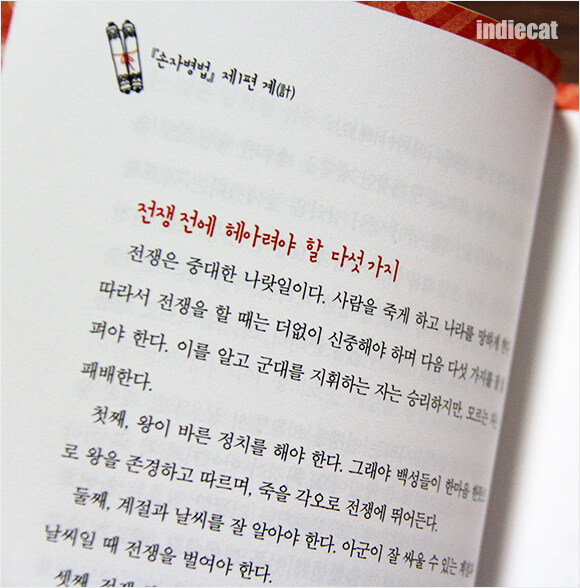 indiecat
『손자병법』 제1편 계(計)
전쟁 전에 헤아려야 할 다섯 가지
전쟁은 중대한 나랏일이다. 사람을 죽게 하고 나라를 망하게
따라서 전쟁을 할 때는 더없이 신중해야 하며 다음 다섯 가지를
펴야 한다. 이를 알고 군대를 지휘하는 자는 승리하지만, 모르는
패배한다.
첫째, 왕이 바른 정치를 해야 한다. 그래야 백성들이 한마음
로 왕을 존경하고 따르며, 죽을 각오로 전쟁에 뛰어든다.
둘째, 계절과 날씨를 잘 알아야 한다. 아군이 잘 싸울 수 있는
날씨일 때 전쟁을 벌여야 한다.
셋째,